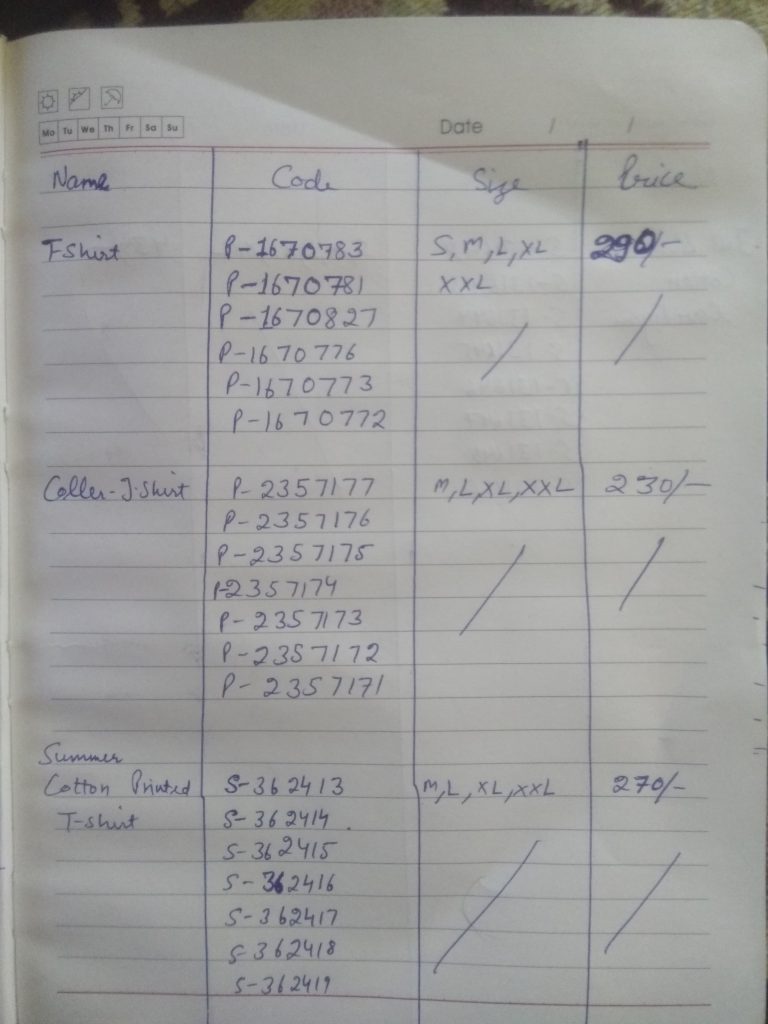 Mo Tu We Th Fr Sa Su
Date / /
Name Code Size Price
T-Shirt P-1670783 S, M, L, XL 290/-
P-1670781 XXL
P-1670827
P-1670776
P-1670773
P-1670772
Coller-T-Shirt P-2357177 M, L, XL, XXL 230/-
P-2357176
P-2357175
P-2357174
P-2357173
P-2357172
P-2357171
Summer
Cotton Printed S-362413 M, L, XL, XXL 270/-
T-shirt S-362414
S-362415
S-362416
S-362417
S-362418
S-362419